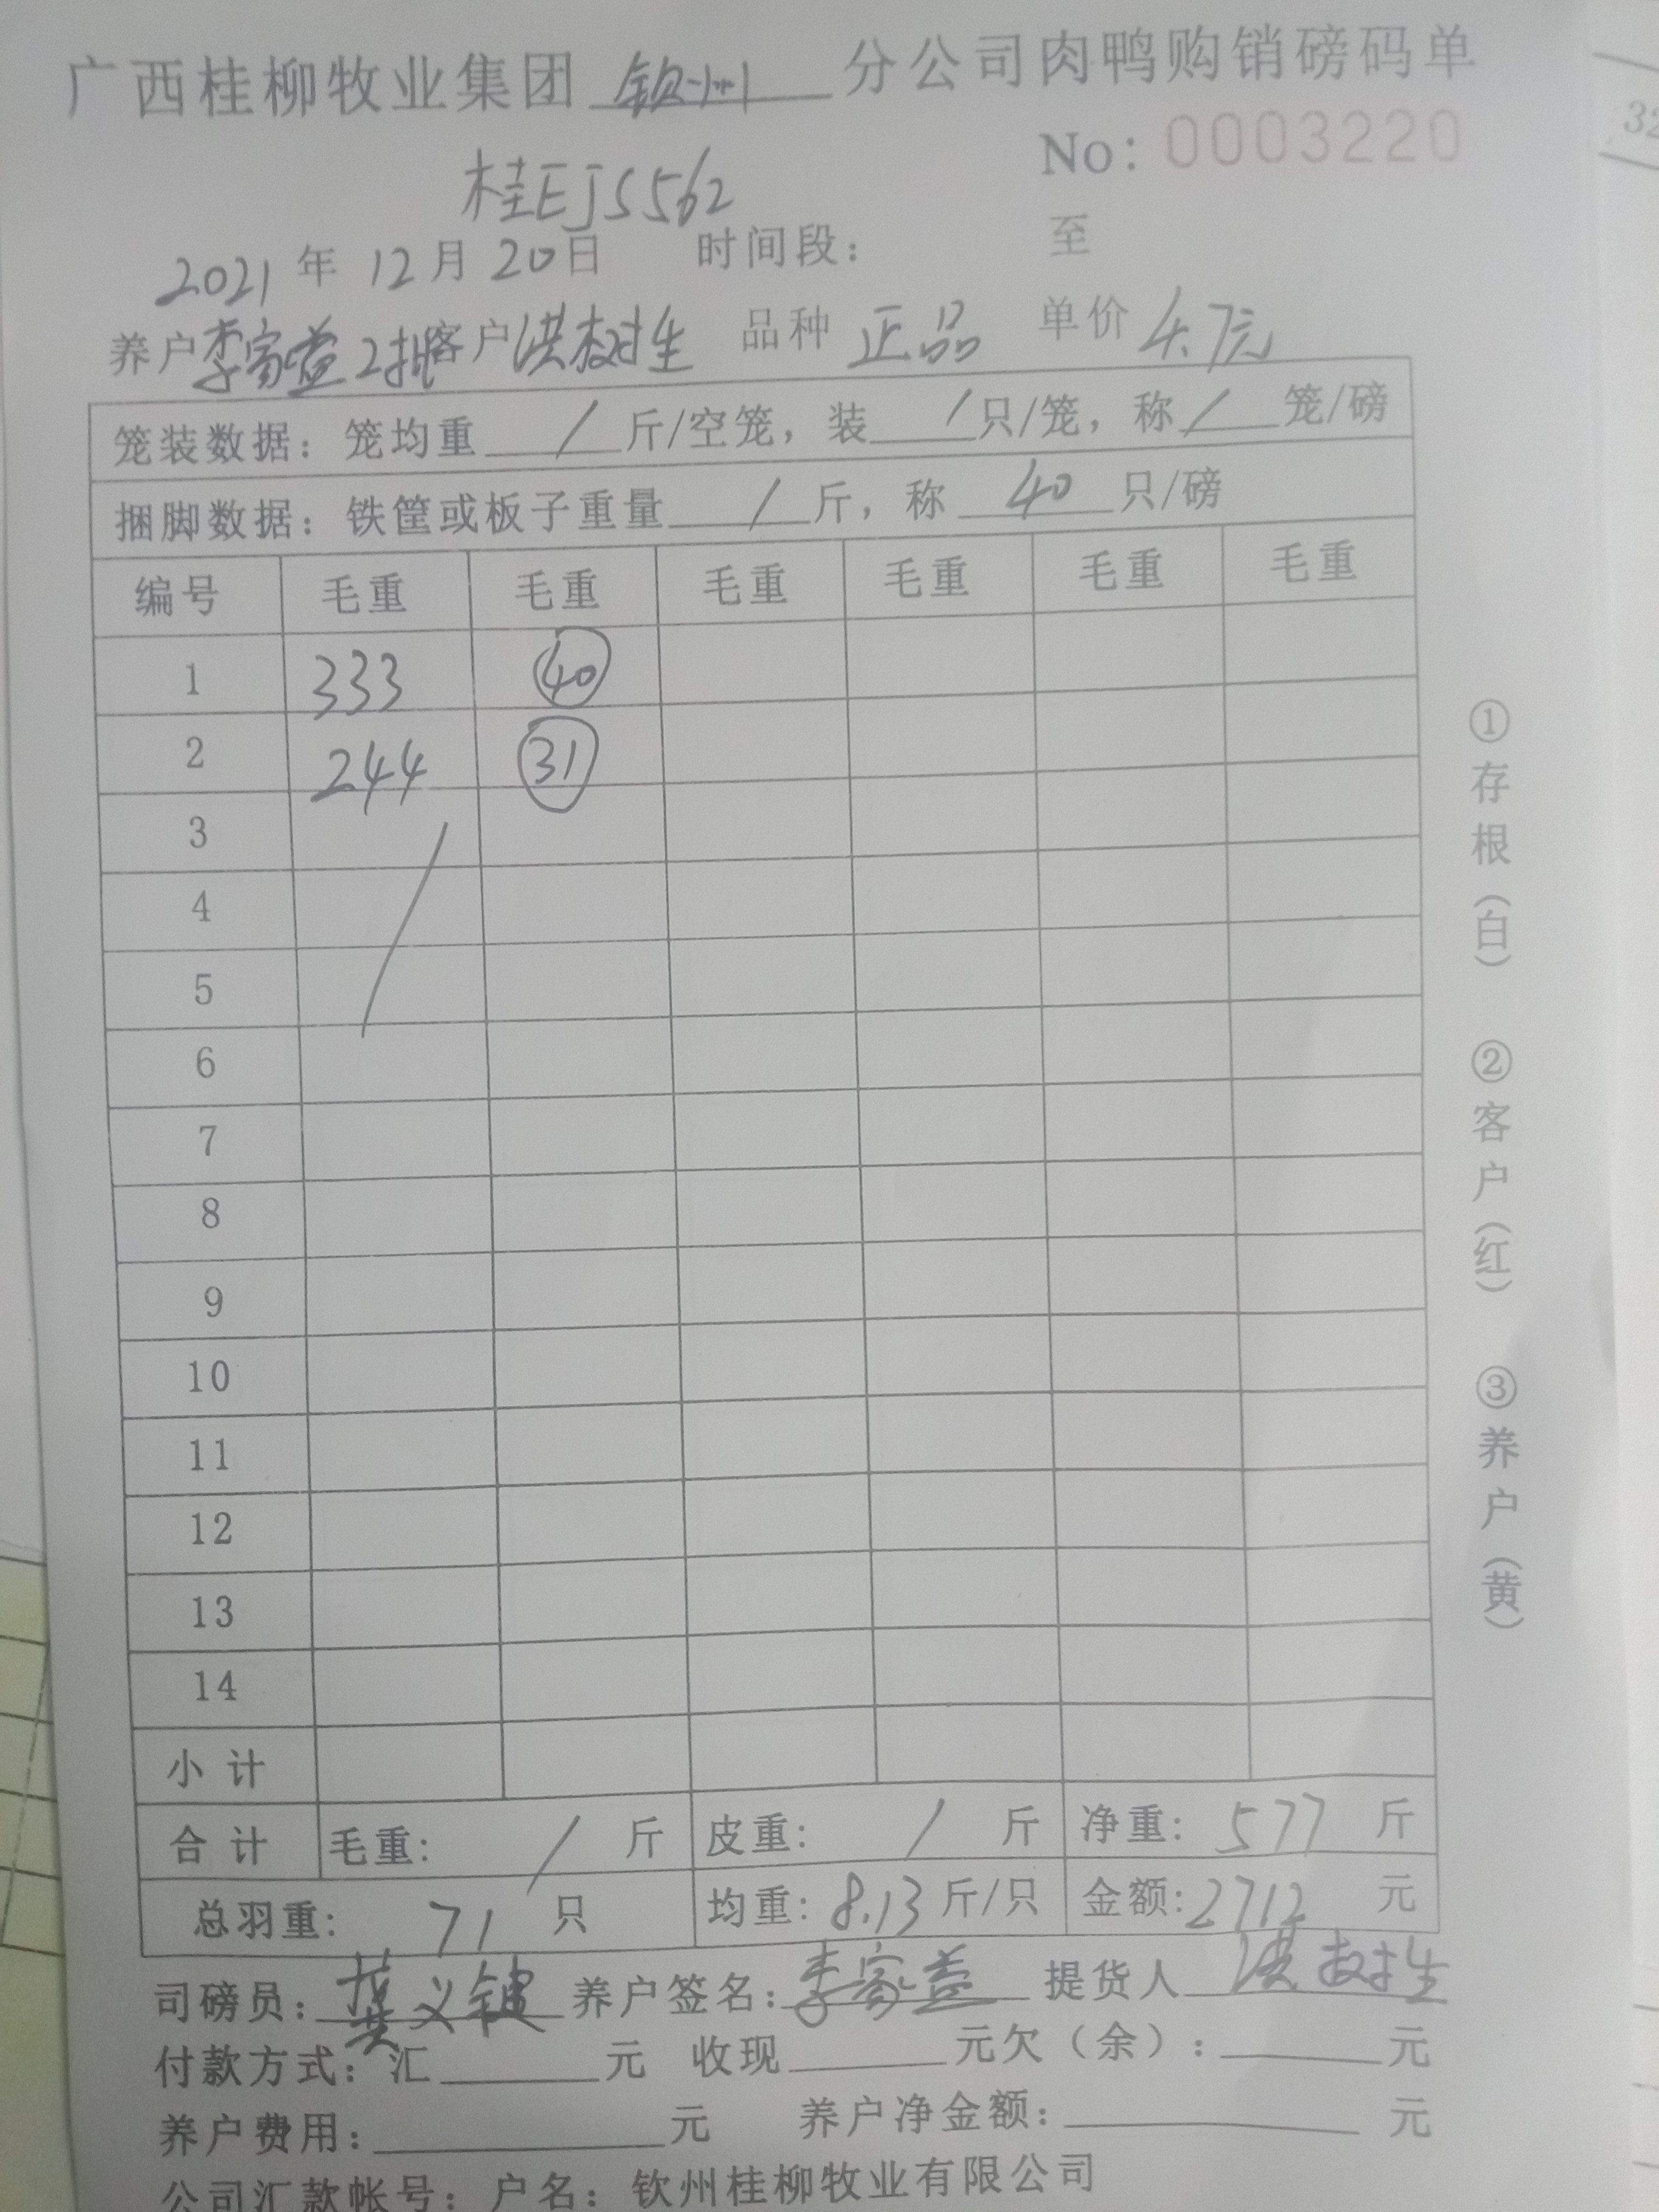 广西桂柳牧业集团 钦州 分公司肉鸭购销磅码单
No: 0003220
桂EJ5562
2021年12月20日 时间段: 至
养户李家益2批客户洪树生 品种 正品 单价 4.7元
笼装数据: 笼均重 / 斤/空笼, 装 / 只/笼, 称 / 笼/磅
捆脚数据: 铁筐或板子重量 / 斤, 称 40 只/磅
编号 毛重 毛重 毛重 毛重 毛重 毛重
1 333 40
2 244 31
3
4
5
6
7
8
9
10
11
12
13
14
小计
合计 毛重: / 斤 皮重: / 斤 净重: 577 斤
总羽重: 71 只 均重: 8.13 斤/只 金额: 2712 元
司磅员: 龚义键 养户签名: 李家益 提货人 洪树生
付款方式: 汇 元 收现 元欠(余): 元
养户费用: 元 养户净金额: 元
公司汇款帐号: 户名: 钦州桂柳牧业有限公司
①存根(白) ②客户(红) ③养户(黄)
32